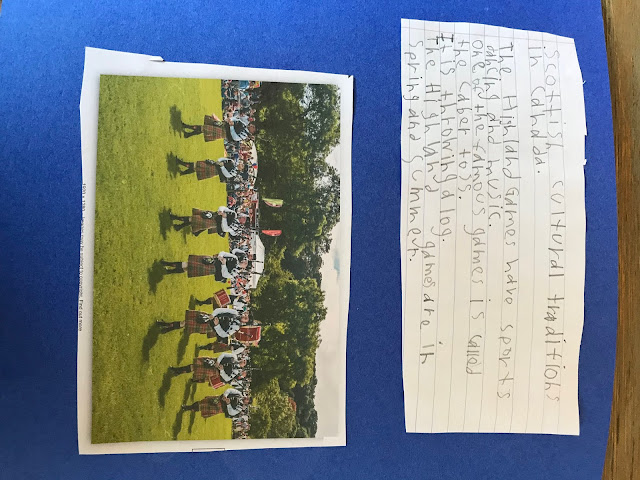 Scottish cultural traditions
in Canada.
The Highland Games have sports
and music.
one of the famous games is called
the caber toss.
It is throwing a log.
The Highland games are in
Spring and summer.